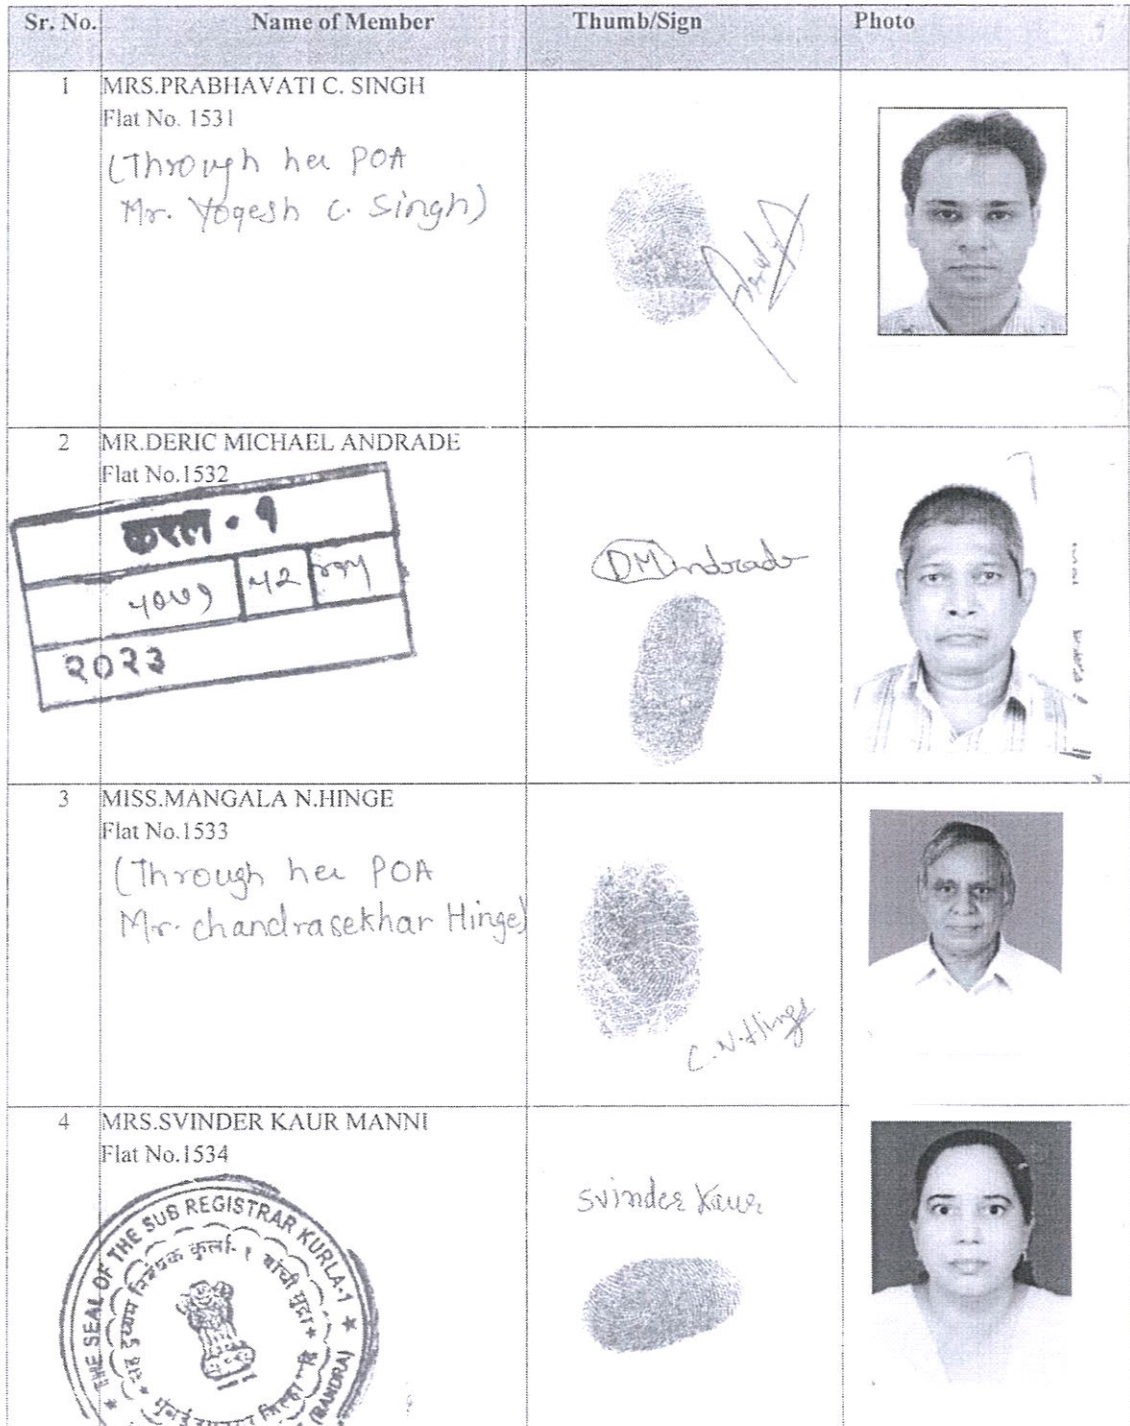 Sr. No. Name of Member Thumb/Sign Photo
1 MRS.PRABHAVATI C. SINGH
Flat No. 1531
(Through her POA
Mr. Yogesh C. Singh)
2 MR.DERIC MICHAEL ANDRADE
Flat No.1532
करल - १
५२
२०२३
DMAndrade
3 MISS.MANGALA N.HINGE
Flat No.1533
(Through her POA
Mr. chandrasekhar Hinge)
C.N.Hinge
4 MRS.SVINDER KAUR MANNI
Flat No.1534
Svinder Kaur
THE SEAL OF THE SUB REGISTRAR KURLA-1
(BANDRA)
सह दुय्यम निबंधक कुर्ला- १ यांची मुद्रा